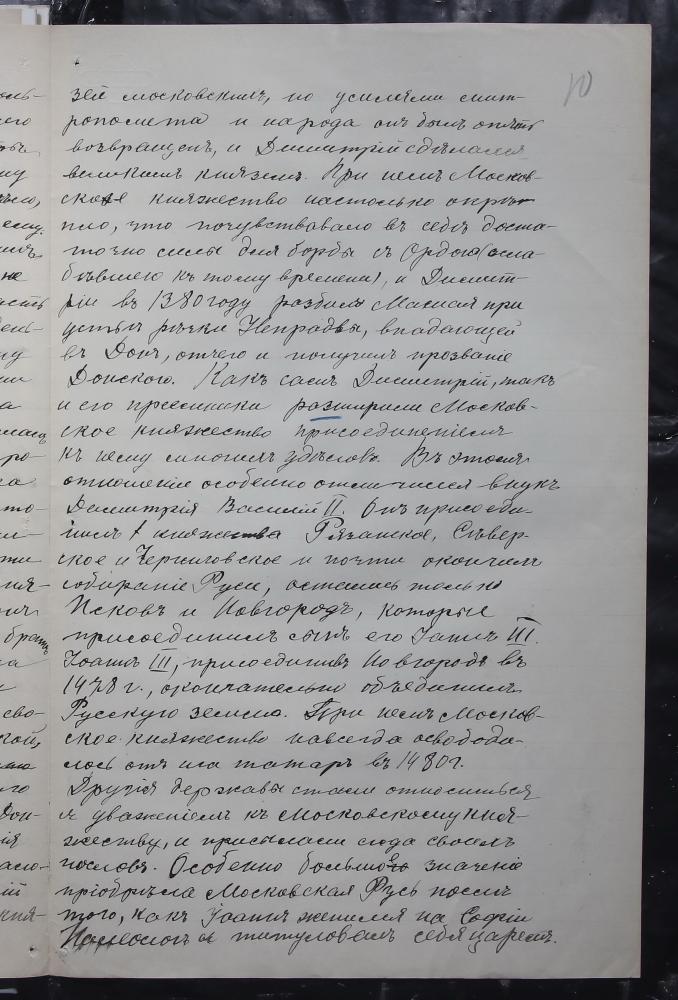 10
зей московскимъ, но усилiями мит-
рополита и народа онъ былъ опять
возвращенъ, и Димитрiй сдѣлался
великимъ княземъ. При немъ Москов-
ское княжество настолько окрѣ-
пло, что почувствовало въ себѣ доста-
точно силы для борьбы съ Ордою (осла-
бѣвшею къ тому времени), и Димит-
рiй въ 1380 году разбилъ Мамая при
устьи рѣчки Непрядвы, впадающей
въ Донъ, отчего и получилъ прозванiе
Донского. Какъ самъ Димитрiй, такъ
и его преемники разширили Москов-
ское княжество присоединенiемъ
къ нему многихъ удѣловъ. Въ этомъ
отношенiи особенно отличился внукъ
Димитрiя Василiй II. Онъ присоеди-
нилъ княжества Рязанское, Сѣвер-
ское и Черниговское и почти окончилъ
собиранiе Руси, остались только
Псковъ и Новгородъ, которые
присоединилъ сынъ его Iоаннъ III.
Iоаннъ III, присоединивъ Новгородъ въ
1478 г., окончательно объединилъ
Русскую землю. При немъ Москов-
ское княжество навсегда освободи-
лось отъ ига татаръ въ 1480 г.
Другiя державы стали относиться
съ уваженiемъ къ Московскому кня-
жеству, и присылали сюда своихъ
пословъ. Особенно большое значенiе
прiобрѣла Московская Русь послѣ
того, какъ Iоаннъ женился на Софiи
Палеологъ и титуловалъ себя царемъ.